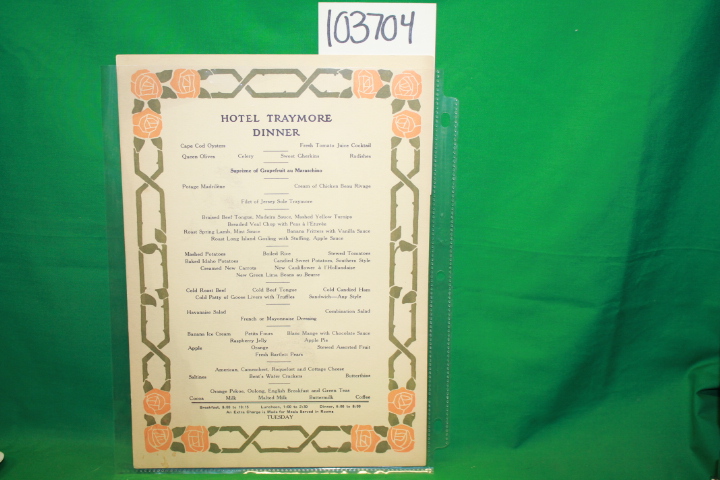 103704
HOTEL TRAYMORE
DINNER
Cape Cod Oysters Fresh Tomato Juice Cocktail
Queen Olives Celery Sweet Gherkins Radishes
Supreme of Grapefruit au Maraschino
Potage Madrilène Cream of Chicken Beau Rivage
Filet of Jersey Sole Traymore
Braised Beef Tongue, Madeira Sauce, Mashed Yellow Turnips
Breaded Veal Chop with Peas à l'Etuvée
Roast Spring Lamb, Mint Sauce Banana Fritters with Vanilla Sauce
Roast Long Island Gosling with Stuffing, Apple Sauce
Mashed Potatoes Boiled Rice Stewed Tomatoes
Baked Idaho Potatoes Candied Sweet Potatoes, Southern Style
Creamed New Carrots New Cauliflower à l'Hollandaise
New Green Lima Beans au Beurre
Cold Roast Beef Cold Beef Tongue Cold Candied Ham
Cold Patty of Goose Livers with Truffles Sandwich—Any Style
Havanaise Salad Combination Salad
French or Mayonnaise Dressing
Banana Ice Cream Petits Fours Blanc Mange with Chocolate Sauce
Raspberry Jelly Apple Pie
Apple Orange Stewed Assorted Fruit
Fresh Bartlett Pears
American, Camembert, Roquefort and Cottage Cheese
Saltines Bent's Water Crackers Butterthins
Orange Pekoe, Oolong, English Breakfast and Green Teas
Cocoa Milk Malted Milk Buttermilk Coffee
Breakfast, 8:00 to Luncheon, 1:00 to Dinner,
An Extra Charge is Made for Meals Served in Rooms
TUESDAY